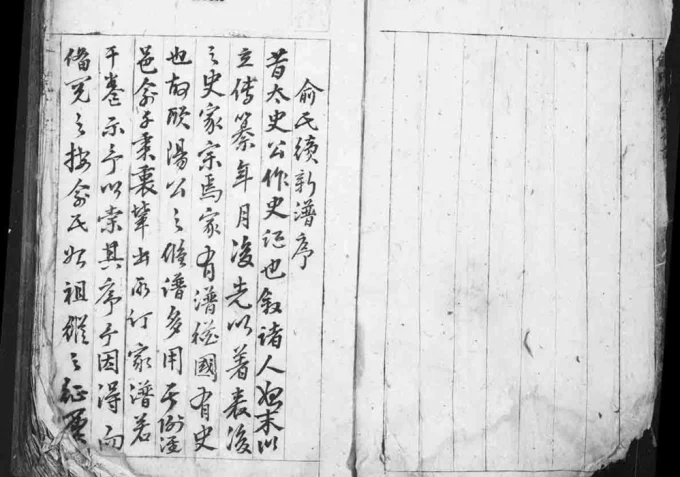 俞氏續新譜序
昔太史公作史記也敘諸人始末以
立傳纂年月後先以著表後
之史家宗焉家有譜猶國有史
也故歐陽公之修譜多用其例涇
邑俞子秉衷輩出所訂家譜若
干卷示予以索其序予因得而
備究之按俞氏始祖縱之征